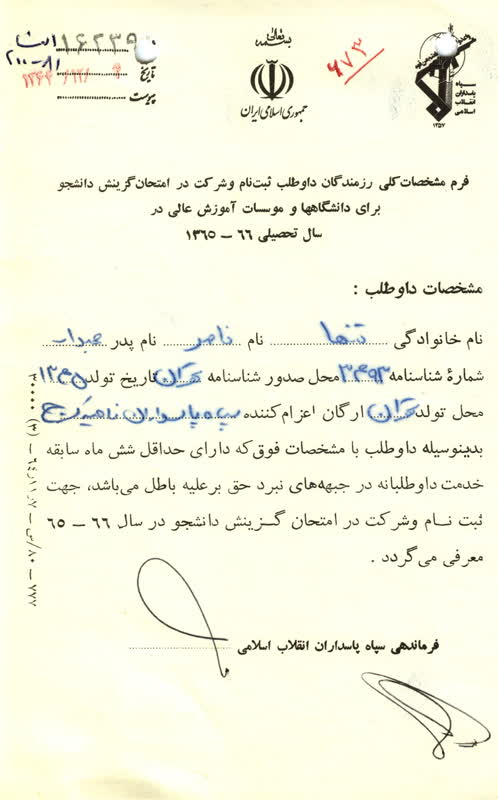 بسمه تعالی
جمهوری اسلامی ایران
سپاه
پاسداران
انقلاب
اسلامی
۱۳۵۷
۶۷۳
۱۶۲۳۹۰
تاریخ
پیوست
فرم مشخصات کلی رزمندگان داوطلب ثبت‌نام وشرکت در امتحان گزینش دانشجو
برای دانشگاهها و موسسات آموزش عالی در
سال تحصیلی ۶۶ – ۱۳۶۵
مشخصات داوطلب :
نام خانوادگی تنها نام ناصر نام پدر
شمارهٔ شناسنامه محل صدور شناسنامه تهران تاریخ تولد
محل تولد تهران ارگان اعزام‌کننده سپاه پاسداران ناحیه کرج
بدینوسیله داوطلب با مشخصات فوق که دارای حداقل شش ماه سابقه
خدمت داوطلبانه در جبهه‌های نبرد حق برعلیه باطل می‌باشد، جهت
ثبت نام وشرکت در امتحان گزینش دانشجو در سال ۶۶ – ۶۵
معرفی می‌گردد .
فرماندهی سپاه پاسداران انقلاب اسلامی